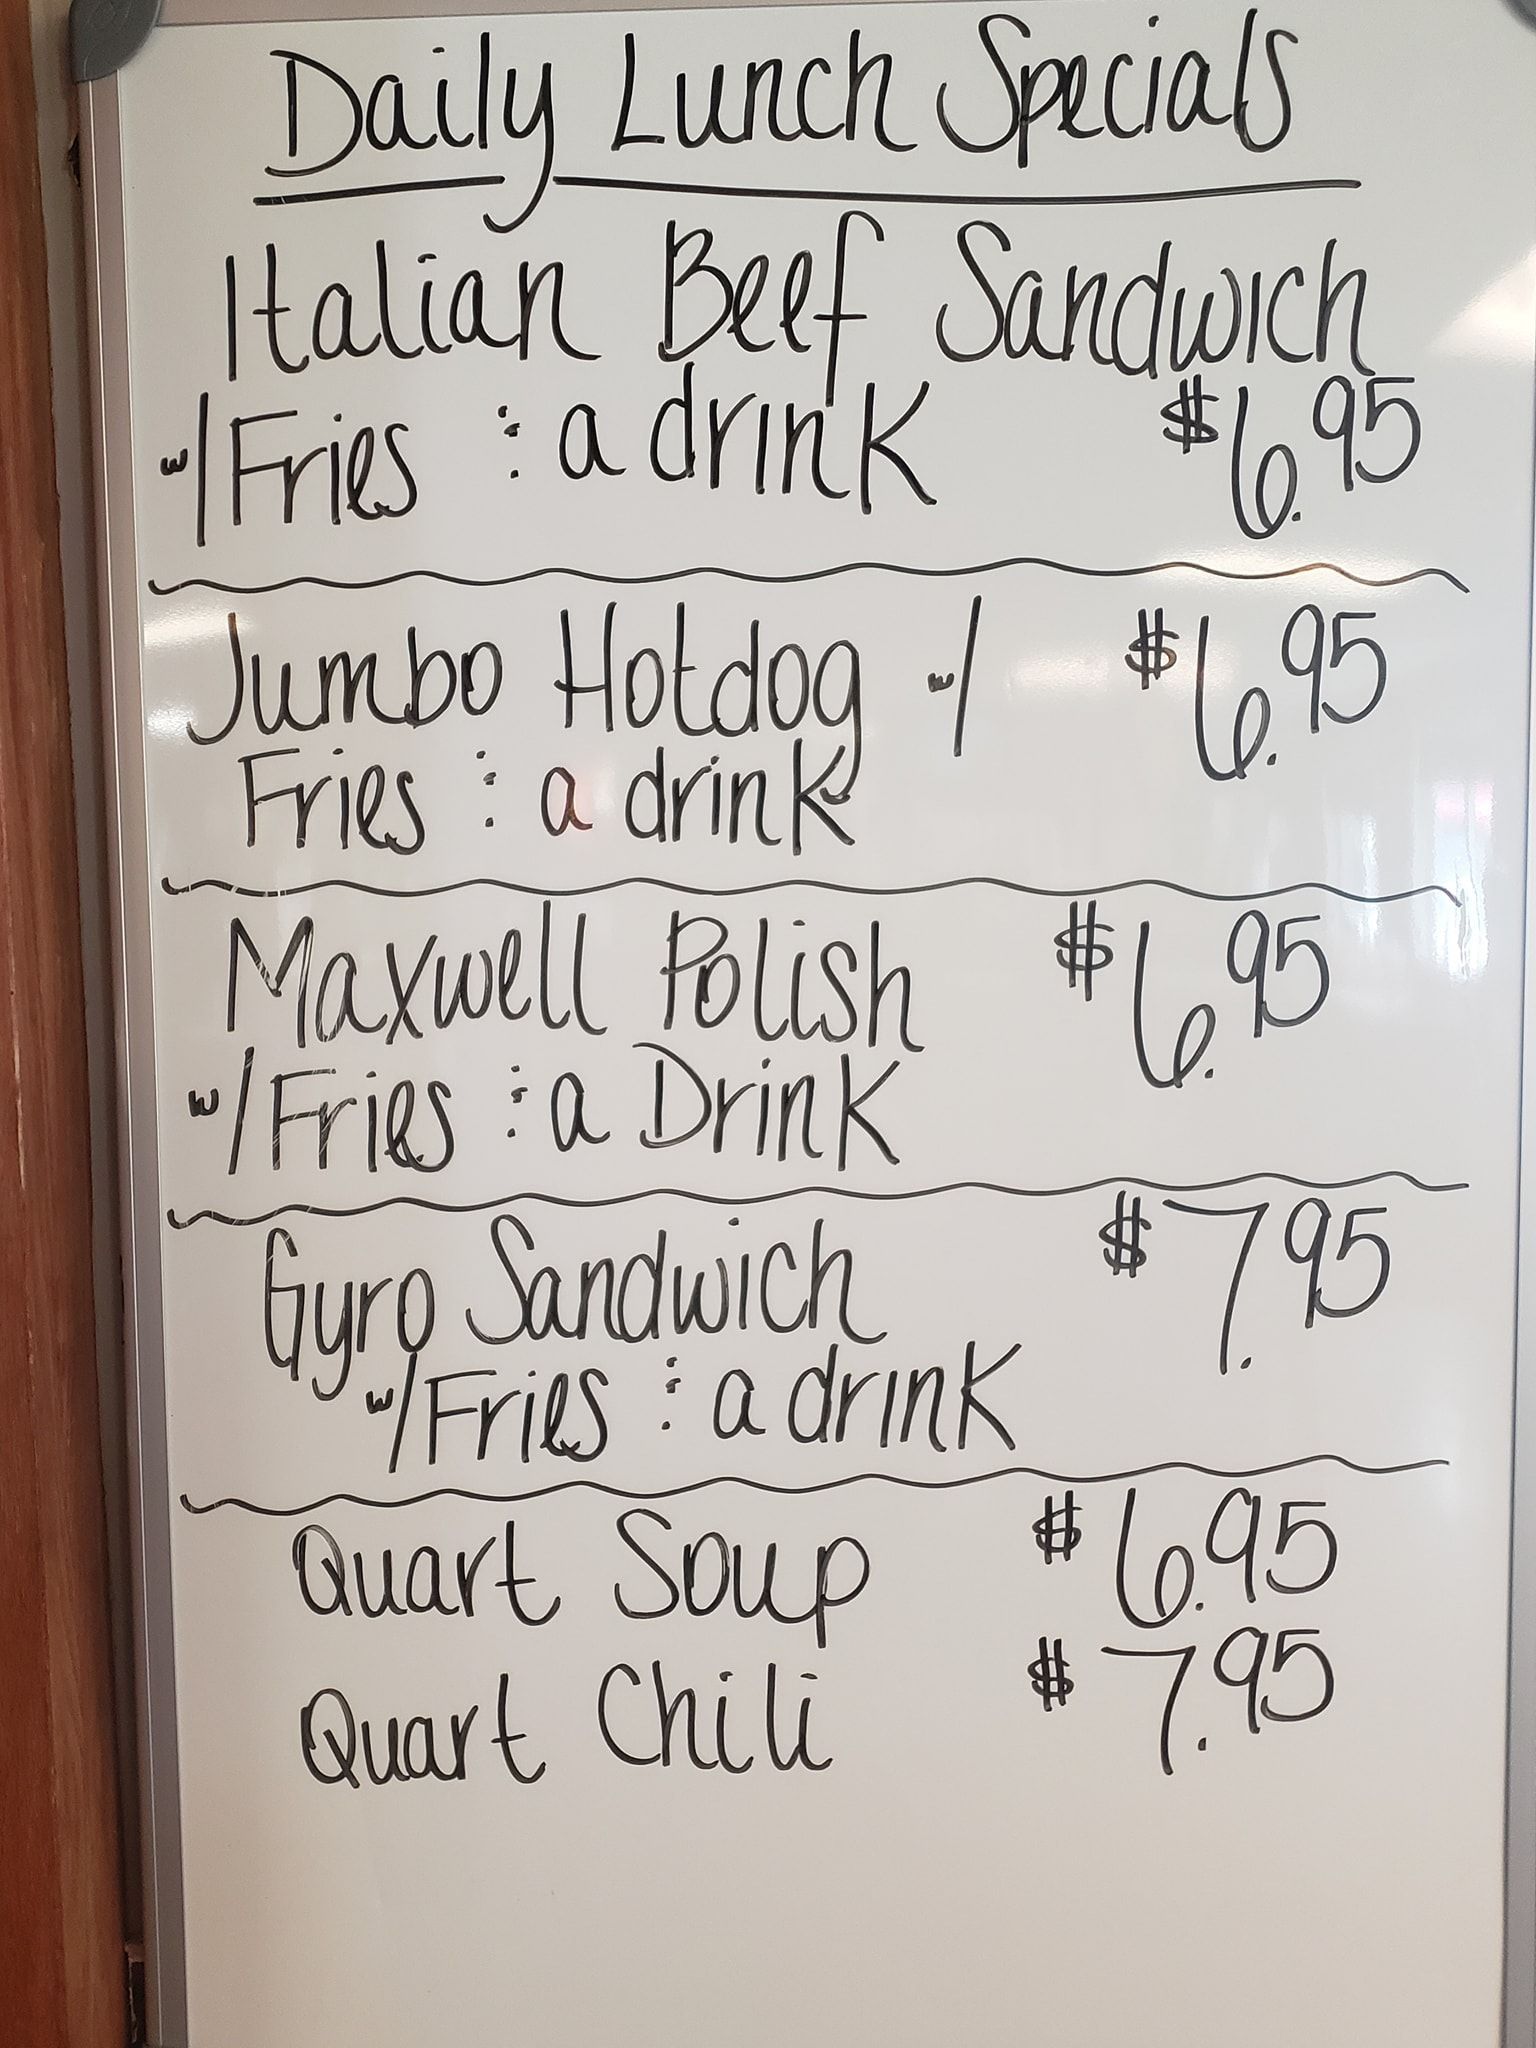 Daily Lunch Specials
Italian Beef Sandwich
w/Fries & a drink $6.95
Jumbo Hotdog w/ $6.95
Fries & a drink
Maxwell Polish $6.95
w/Fries & a Drink
Gyro Sandwich $7.95
w/Fries & a drink
Quart Soup $6.95
Quart Chili $7.95